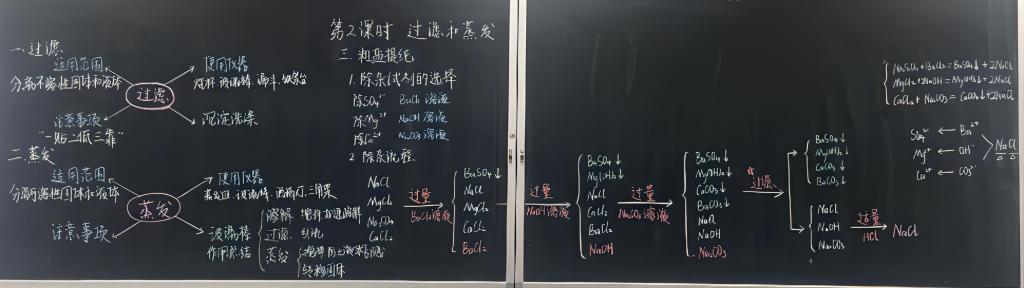 第2课时 过滤和蒸发
一.过滤
适用范围
分离不溶性固体和液体
过滤
使用仪器
烧杯 玻璃棒 漏斗 铁架台
注意事项
"一贴二低三靠"
沉淀洗涤
二.蒸发
适用范围
分离可溶性固体和液体
蒸发
使用仪器
蒸发皿 玻璃棒 酒精灯 三角架
注意事项
玻璃棒
作用总结
溶解 搅拌加速溶解
过滤 引流
蒸发
转移固体
三.粗盐提纯
1.除杂试剂的选择
除SO₄²⁻ BaCl₂溶液
除Mg²⁺ NaOH溶液
除Ca²⁺ Na₂CO₃溶液
2 除杂流程
NaCl
MgCl₂
Na₂SO₄
CaCl₂
过量
BaCl₂溶液
BaSO₄↓
NaCl
MgCl₂
CaCl₂
BaCl₂
过量
NaOH溶液
BaSO₄↓
Mg(OH)₂↓
NaCl
CaCl₂
BaCl₂
NaOH
过量
Na₂CO₃溶液
BaSO₄↓
Mg(OH)₂↓
CaCO₃↓
BaCO₃↓
NaCl
NaOH
Na₂CO₃
过滤
BaSO₄↓
Mg(OH)₂↓
CaCO₃↓
BaCO₃↓
NaCl
NaOH
Na₂CO₃
过量
HCl
NaCl
Na₂SO₄+BaCl₂=BaSO₄↓+2NaCl
MgCl₂+2NaOH=Mg(OH)₂↓+2NaCl
CaCl₂+Na₂CO₃=CaCO₃↓+2NaCl
SO₄²⁻ ← Ba²⁺
Mg²⁺ ← OH⁻
Ca²⁺ ← CO₃²⁻
NaCl